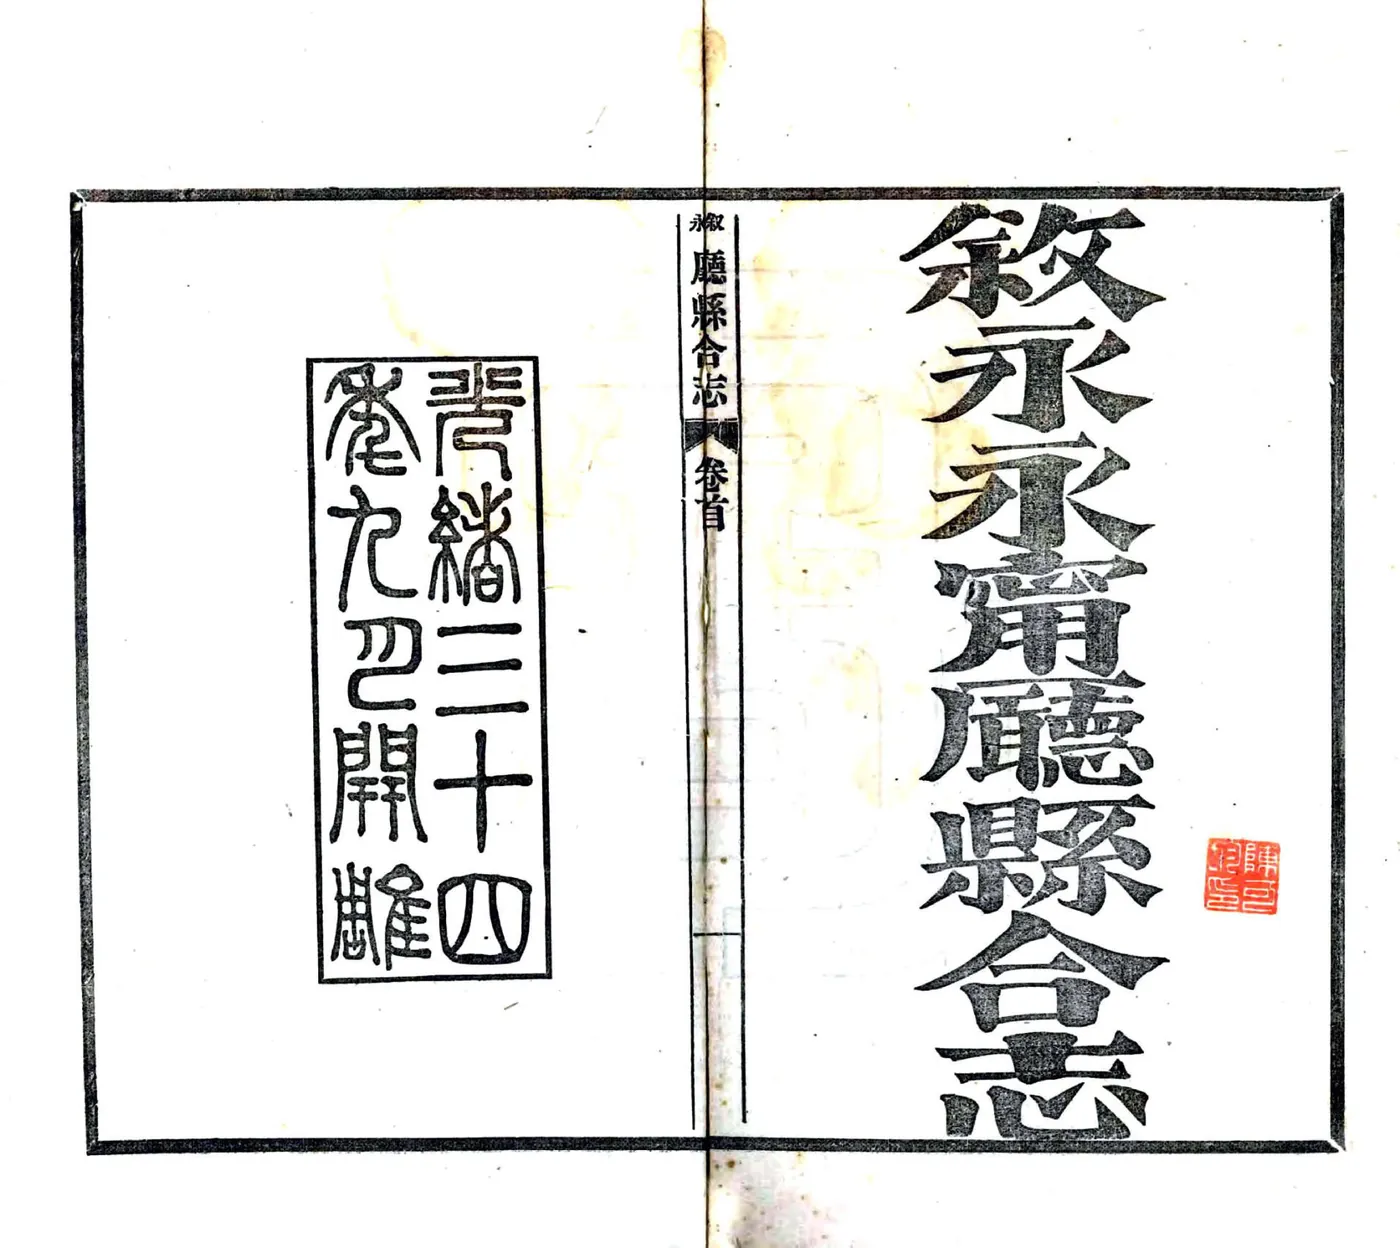 敘永永甯廳縣合志
叙永廳縣合志
卷首
光緒三十四
年九月開雕